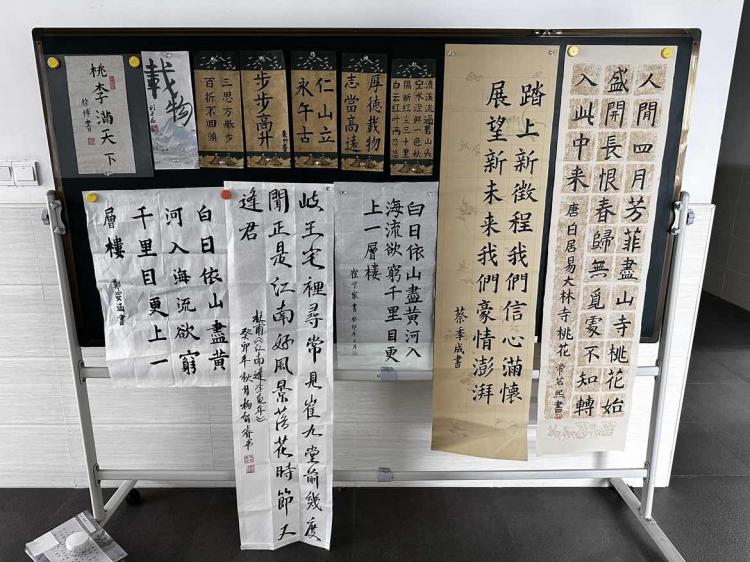 桃李滿天下
書
載物
三思方舉步
百折不回頭
步步高升
仁山立
永午古
厚德載物
志當高遠
清溪流過碧山頭
空水澄鮮一色秋
隔斷紅塵三十里
白云紅叶兩悠悠
踏上新徵程我們信心滿懷
展望新未來我們豪情澎湃
蔡季成書
人間四月芳菲盡山寺桃花始
盛開長恨春歸無覓處不知轉
入此中來 唐白居易大林寺桃花 常若熙書
白日依山盡黃
河入海流欲窮
千里目更上一
層樓
岐王宅裡尋常見崔九堂前幾度
聞正是江南好風景落花時節又
逢君
杜甫《江南逢李龜年》
癸卯年秋月楊
白日依山盡黃河入
海流欲窮千里目更
上一層樓